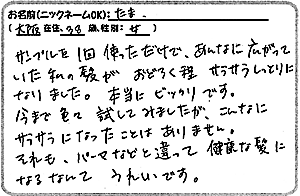 お名前(ニックネームOK): たま
(大阪 在住、38 歳、性別: 女)
サンプルを1回使っただけで、あんなに広がって
いた私の髪が おどろく程 サラサラしっとりに
なりました。 本当に ビックリです。
今まで色々 試してみましたが、こんなに
サラサラになったことは ありません。
それも、パーマなどと違って 健康な髪に
なるなんて うれしいです。